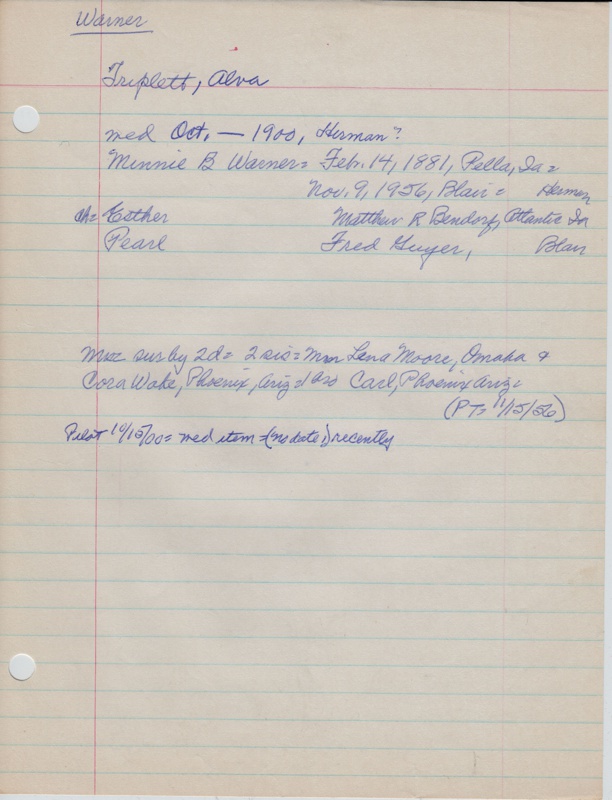 Warner
Triplett, Alva
wed Oct. — 1900, Herman?
Minnie B Warner = Feb. 14, 1881, Pella, Ia =
Nov. 9, 1956, Blair = Herman
ch = Esther Matthew R Bendorf, Atlantic Ia
Pearl Fred Guyer, Blair
sur by 2d = 2 sis = Mrs Lena Moore, Omaha &
Cora Wake, Phoenix, Ariz = 1 bro Carl, Phoenix Ariz =
(PT = 11/15/56)
Pilot 10/15/00 = wed item = (no date) recently